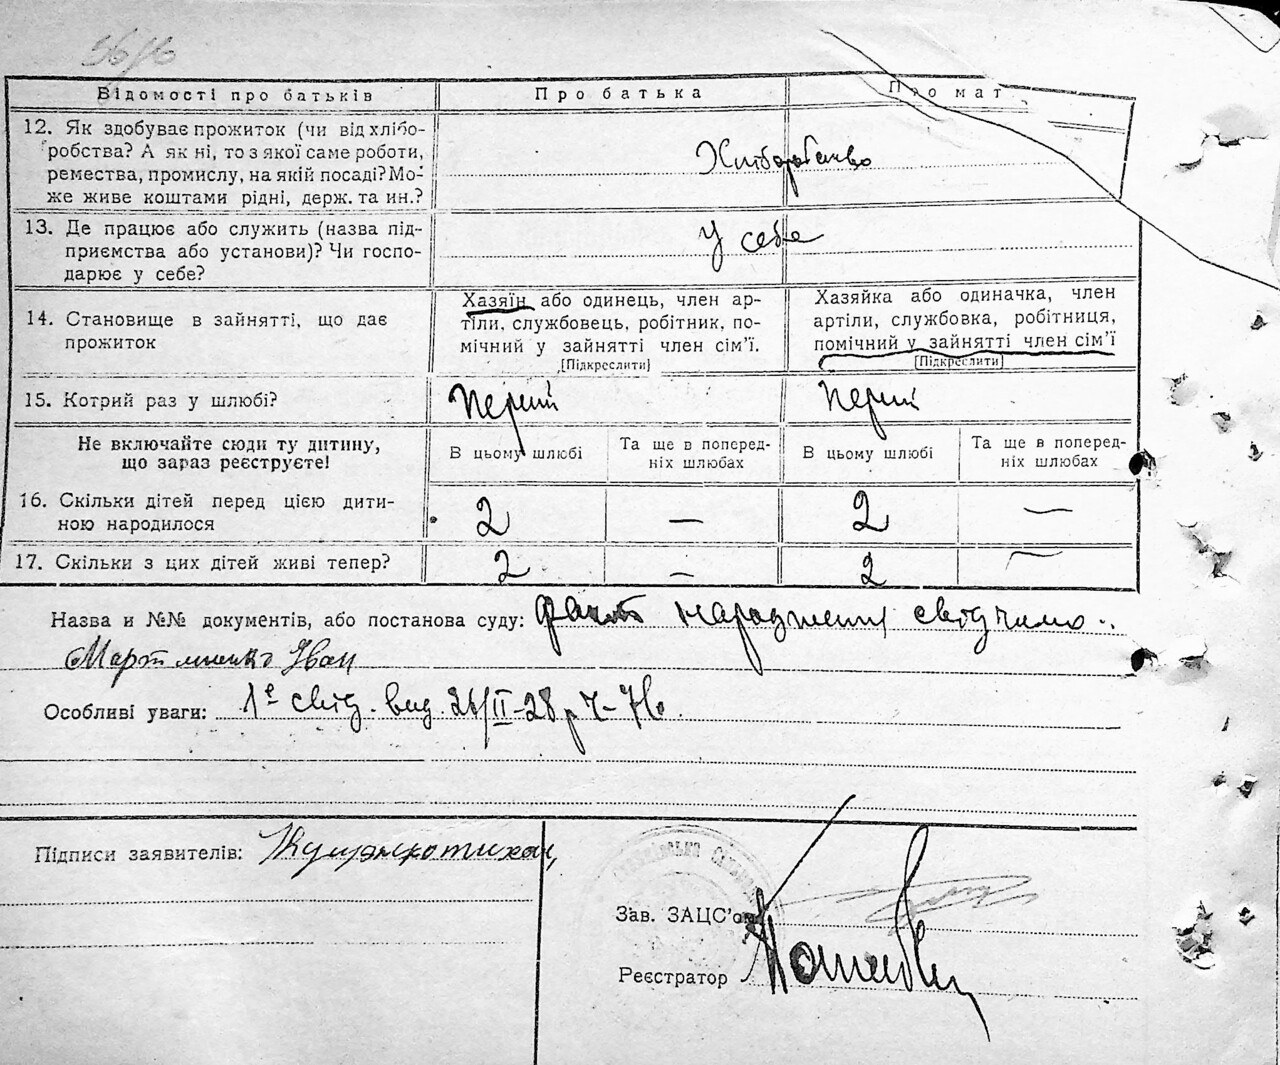 Відомості про батьків Про батька Про мат
12. Як здобуває прожиток (чи від хлібо-
робства? А як ні, то з якої саме роботи,
ремества, промислу, на якій посаді? Мо-
же живе коштами рідні, держ. та ин.?
Хліборобство
13. Де працює або служить (назва під-
приємства або установи)? Чи госпо-
дарює у себе?
у себе
14. Становище в зайнятті, що дає
прожиток
Хазяїн або одинець, член ар-
тіли, службовець, робітник, по-
мічний у зайнятті член сім'ї.
[Підкреслити]
Хазяйка або одиначка, член
артіли, службовка, робітниця,
помічний у зайнятті член сім'ї
[Підкреслити]
15. Котрий раз у шлюбі? перший перший
Не включайте сюди ту дитину,
що зараз реєструєте!
В цьому шлюбі
Та ще в поперед-
ніх шлюбах
В цьому шлюбі
Та ще в поперед-
ніх шлюбах
16. Скільки дітей перед цією дити-
ною народилося
2 — 2 —
17. Скільки з цих дітей живі тепер? 2 — 2 —
Назва и №№ документів, або постанова суду: факт народження свідчимо
Мартиненко Іван
Особливі уваги: 1е свід. вид. 26/II-28 р Ч-76
Підписи заявителів:
Зав. ЗАЦС'ом
Реєстратор